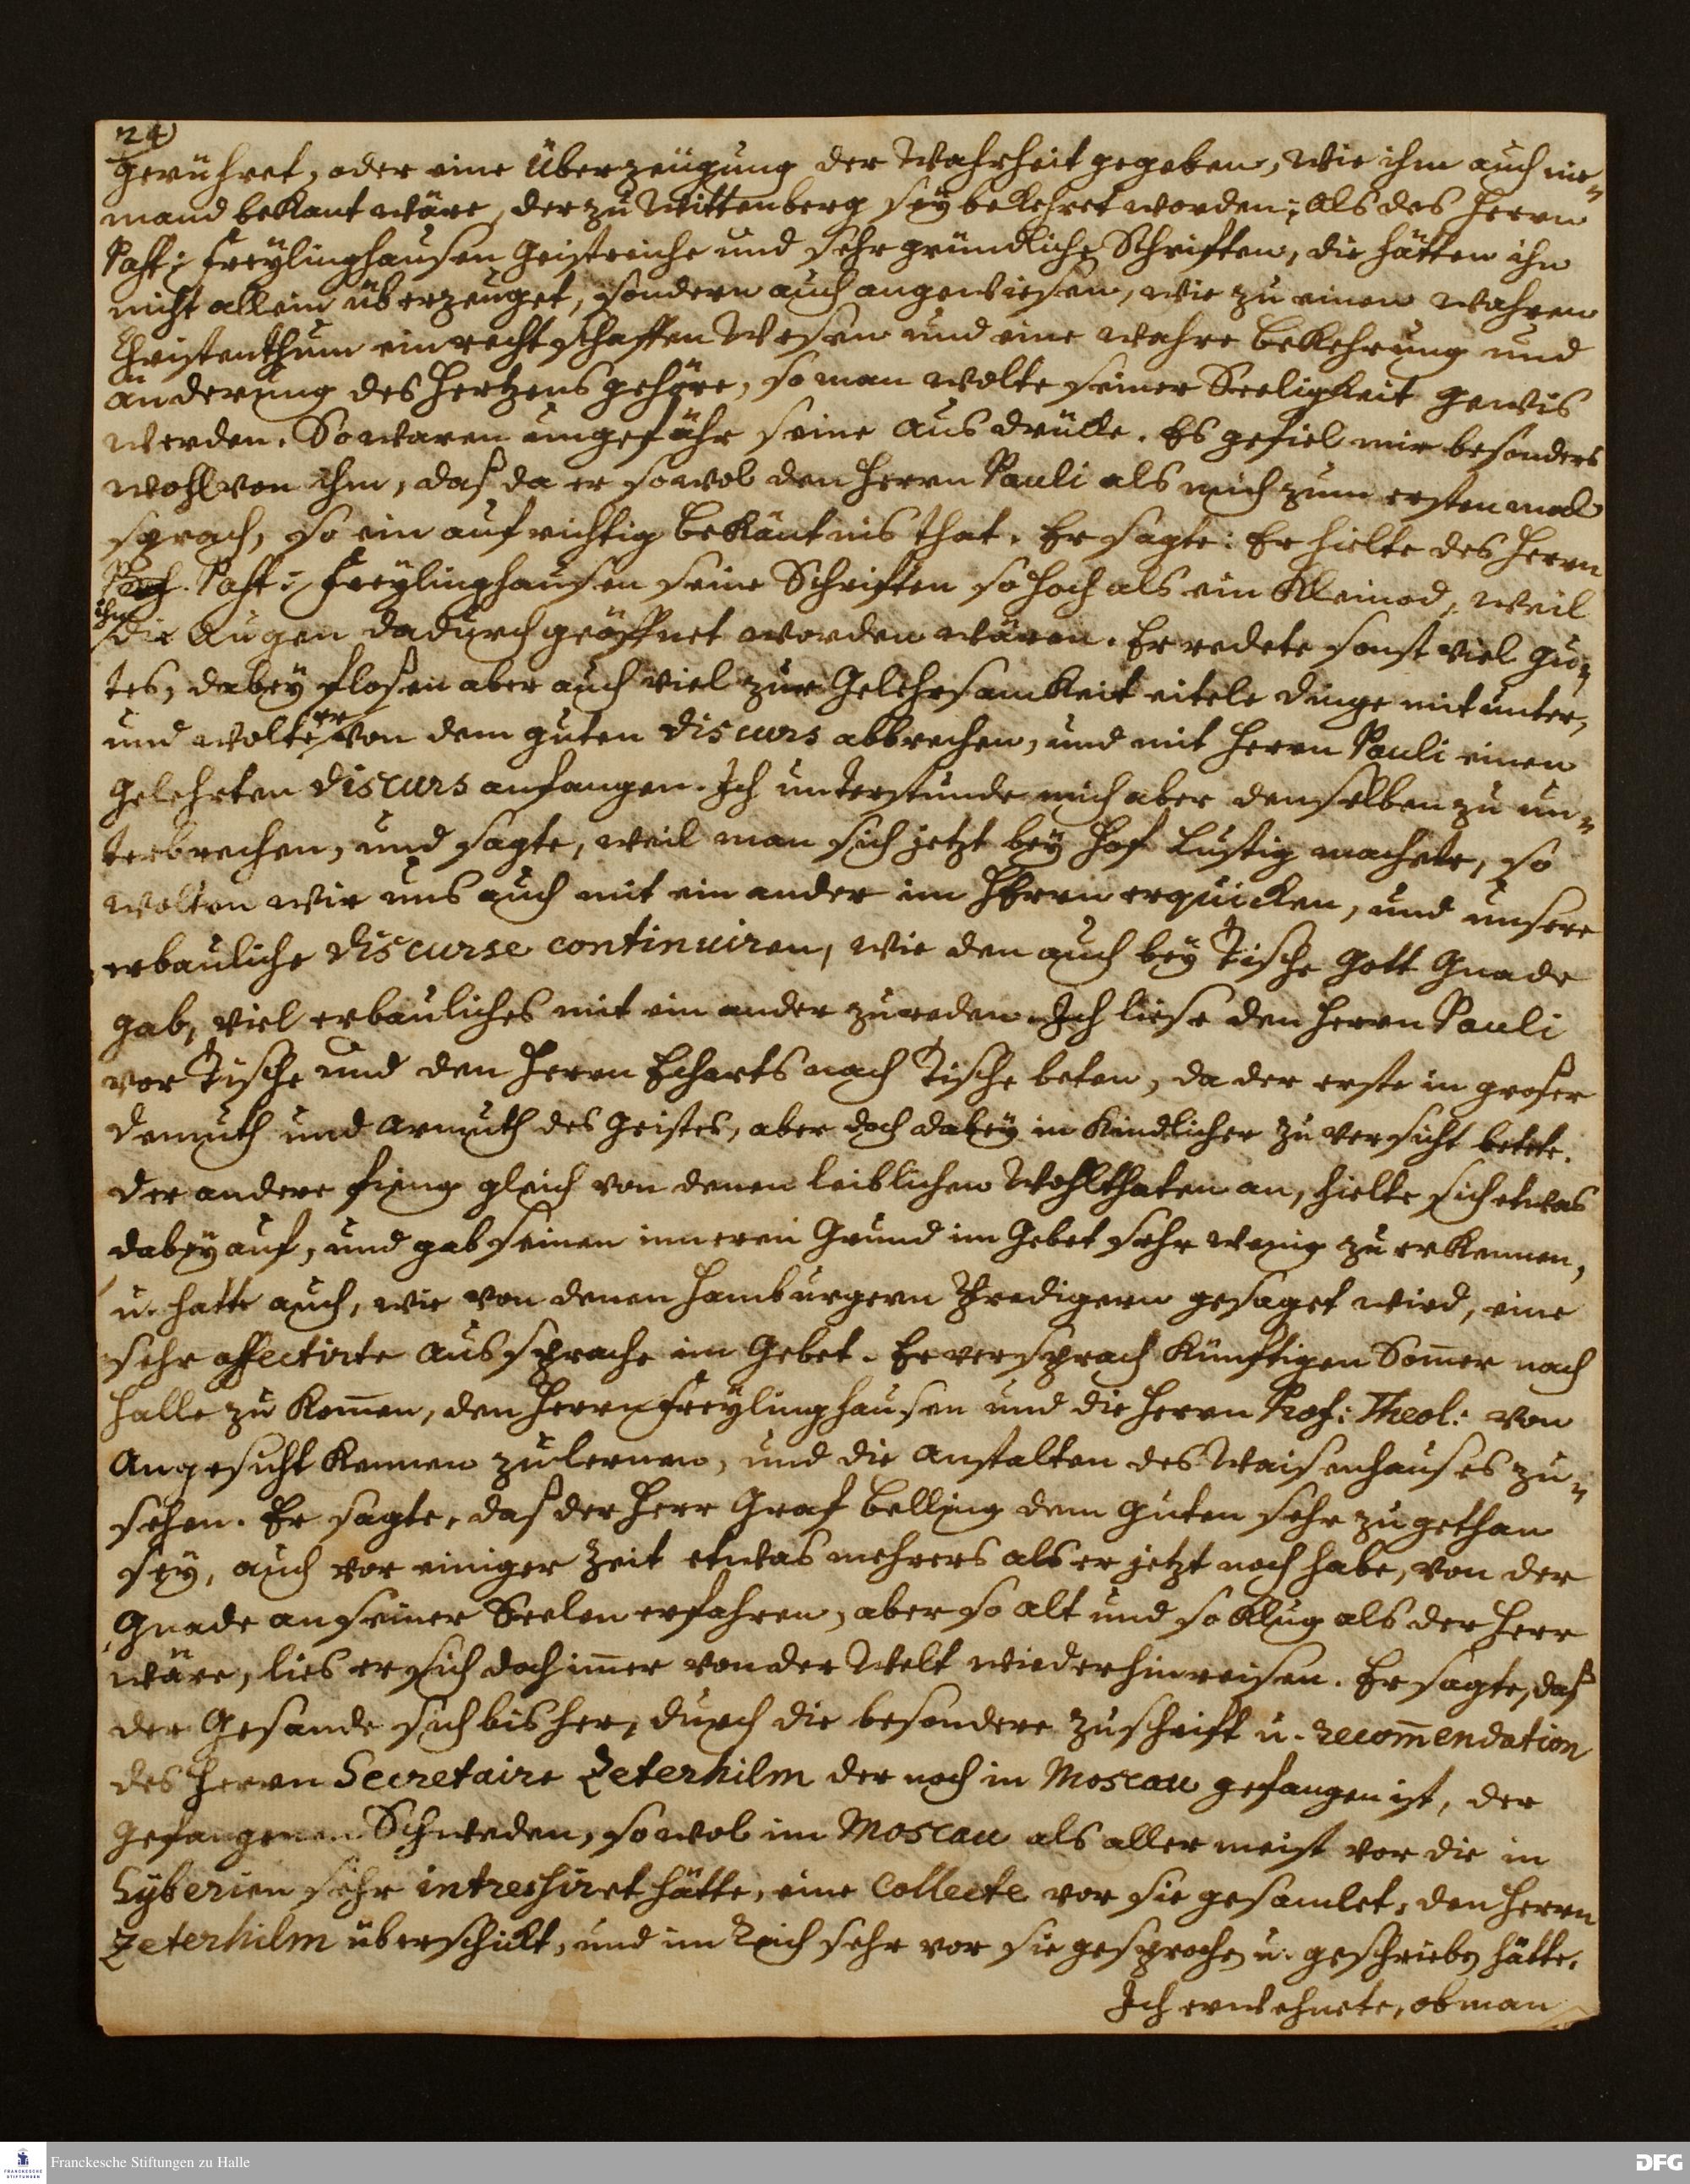 24)
gerühret, oder eine Überzeügung der Wahrheit gegeben, wie ihm auch nie„
mand bekant wäre, der zu Wittenberg seÿ bekehret worden; als des Herrn
Past: Freÿlinghausen Geistreiche und sehr gründliche Schriften, die hätten ihn
nicht allein überzeuget, sondern auch angewiesen, wie zu einen wahren
Christenthum ein rechtschaffen Wesen und eine wahre Bekehrung und
änderung des Hertzens gehöre, so man wolte seiner Seeligkeit gewis
werden. So waren ungefähr seine ausdrücke. Es gefiel mir besonders
wohl von ihm, daß da er sowol den Herrn Pauli als mich zum ersten mal
sprach, so ein aufrichtig Bekäntnis that. Er sagte: Er hielte des Herrn
Past: Freÿlinghausen seine Schriften so hoch als ein Kleinod, weil
ihm
die Augen dadurch geöffnet worden wären. Er redete sonst viel gu„
tes, dabeÿ flosen aber auch viel zur Gelehrsamkeit eitele dinge mit unter,
und wolte er von dem guten discurs abbrechen, und mit Herrn Pauli einen
gelehrten discurs anfangen. Ich unterstunde mich aber denselben zu un„
terbrechen, und sagte, weil man sich jetzt beÿ Hof Lustig machete, so
wolten wir uns auch mit ein ander im HErrn erquicken, und unsere
erbauliche discurse continuiren, wie den auch beÿ Tische Gott Gnade
gab, viel erbauliches mit ein ander zu reden. Ich liese den Herrn Pauli
vor Tische und den Herrn Echarts nach Tische beten, da der erste in groser
demuth und armuth des Geistes, aber doch dabeÿ in Kindlicher zuversicht betete.
der andere fieng gleich von denen leiblichen Wohlthaten an, hielte sich etwas
dabeÿ auf, und gab seinen inneren Grund im Gebet sehr wenig zu erkennen,
u. hatte auch, wie von denen Hamburgern Predigern gesaget wird, eine
sehr affectirte aussprache im Gebet. Er versprach künftigen Som̅er nach
Halle zu kom̅en, den Herrn Freÿlinghausen und die Herrn Prof: Theol: von
Angesicht kennen zu lernen, und die anstalten des Waisenhauses zu„
sehen. Er sagte, daß der Herr Graf Belling dem guten sehr zugethan
seÿ, auch vor einiger Zeit etwas mehrers als er jetzt noch habe, von der
Gnade an seiner Seelen erfahren, aber so alt und so klug als der Herr
wäre, lies er sich doch im̅er von der Welt wieder hinreisen. Er sagte, daß
der Gesande sich bisher, durch die besondere zuschrift u. recom̅endation
des Herrn Secretaire Zeterhilm der noch in Moscau gefangen ist, der
gefangenen Schweden, sowol in Moscau als aller meist vor die in
Sÿberien sehr intressiret hätte, eine Collecte vor sie gesamlet, den Herrn
Zeterhilm überschickt, und im Reich sehr vor sie gesprochen u. geschrieben hätte.
Ich erwehnete, ob man
Franckesche Stiftungen zu Halle
FRANCKESCHE STIFTUNGEN
DFG